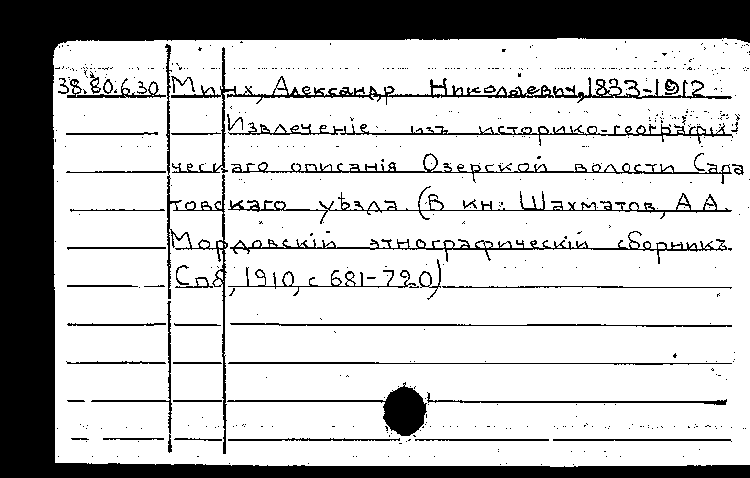 38.80.6.30 Минх, Александр Николаевич, 1833-1912
Извлеченіе изъ историко-географи-
ческаго описанія Озерской волости Сара
товскаго уѣзда (В кн: Шахматов, А.А.
Мордовскій этнографическій сборникъ
Спб, 1910, с 681-720)